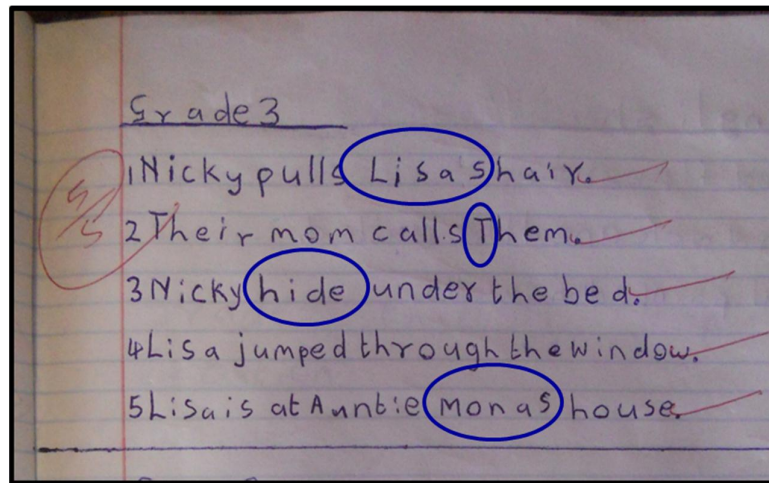 Grade 3
1 Nicky pulls Lisa's hair.
2 Their mom calls Them.
3 Nicky hide under the bed.
4 Lisa jumped through the window.
5 Lisa is at Auntie monas house.
5/5